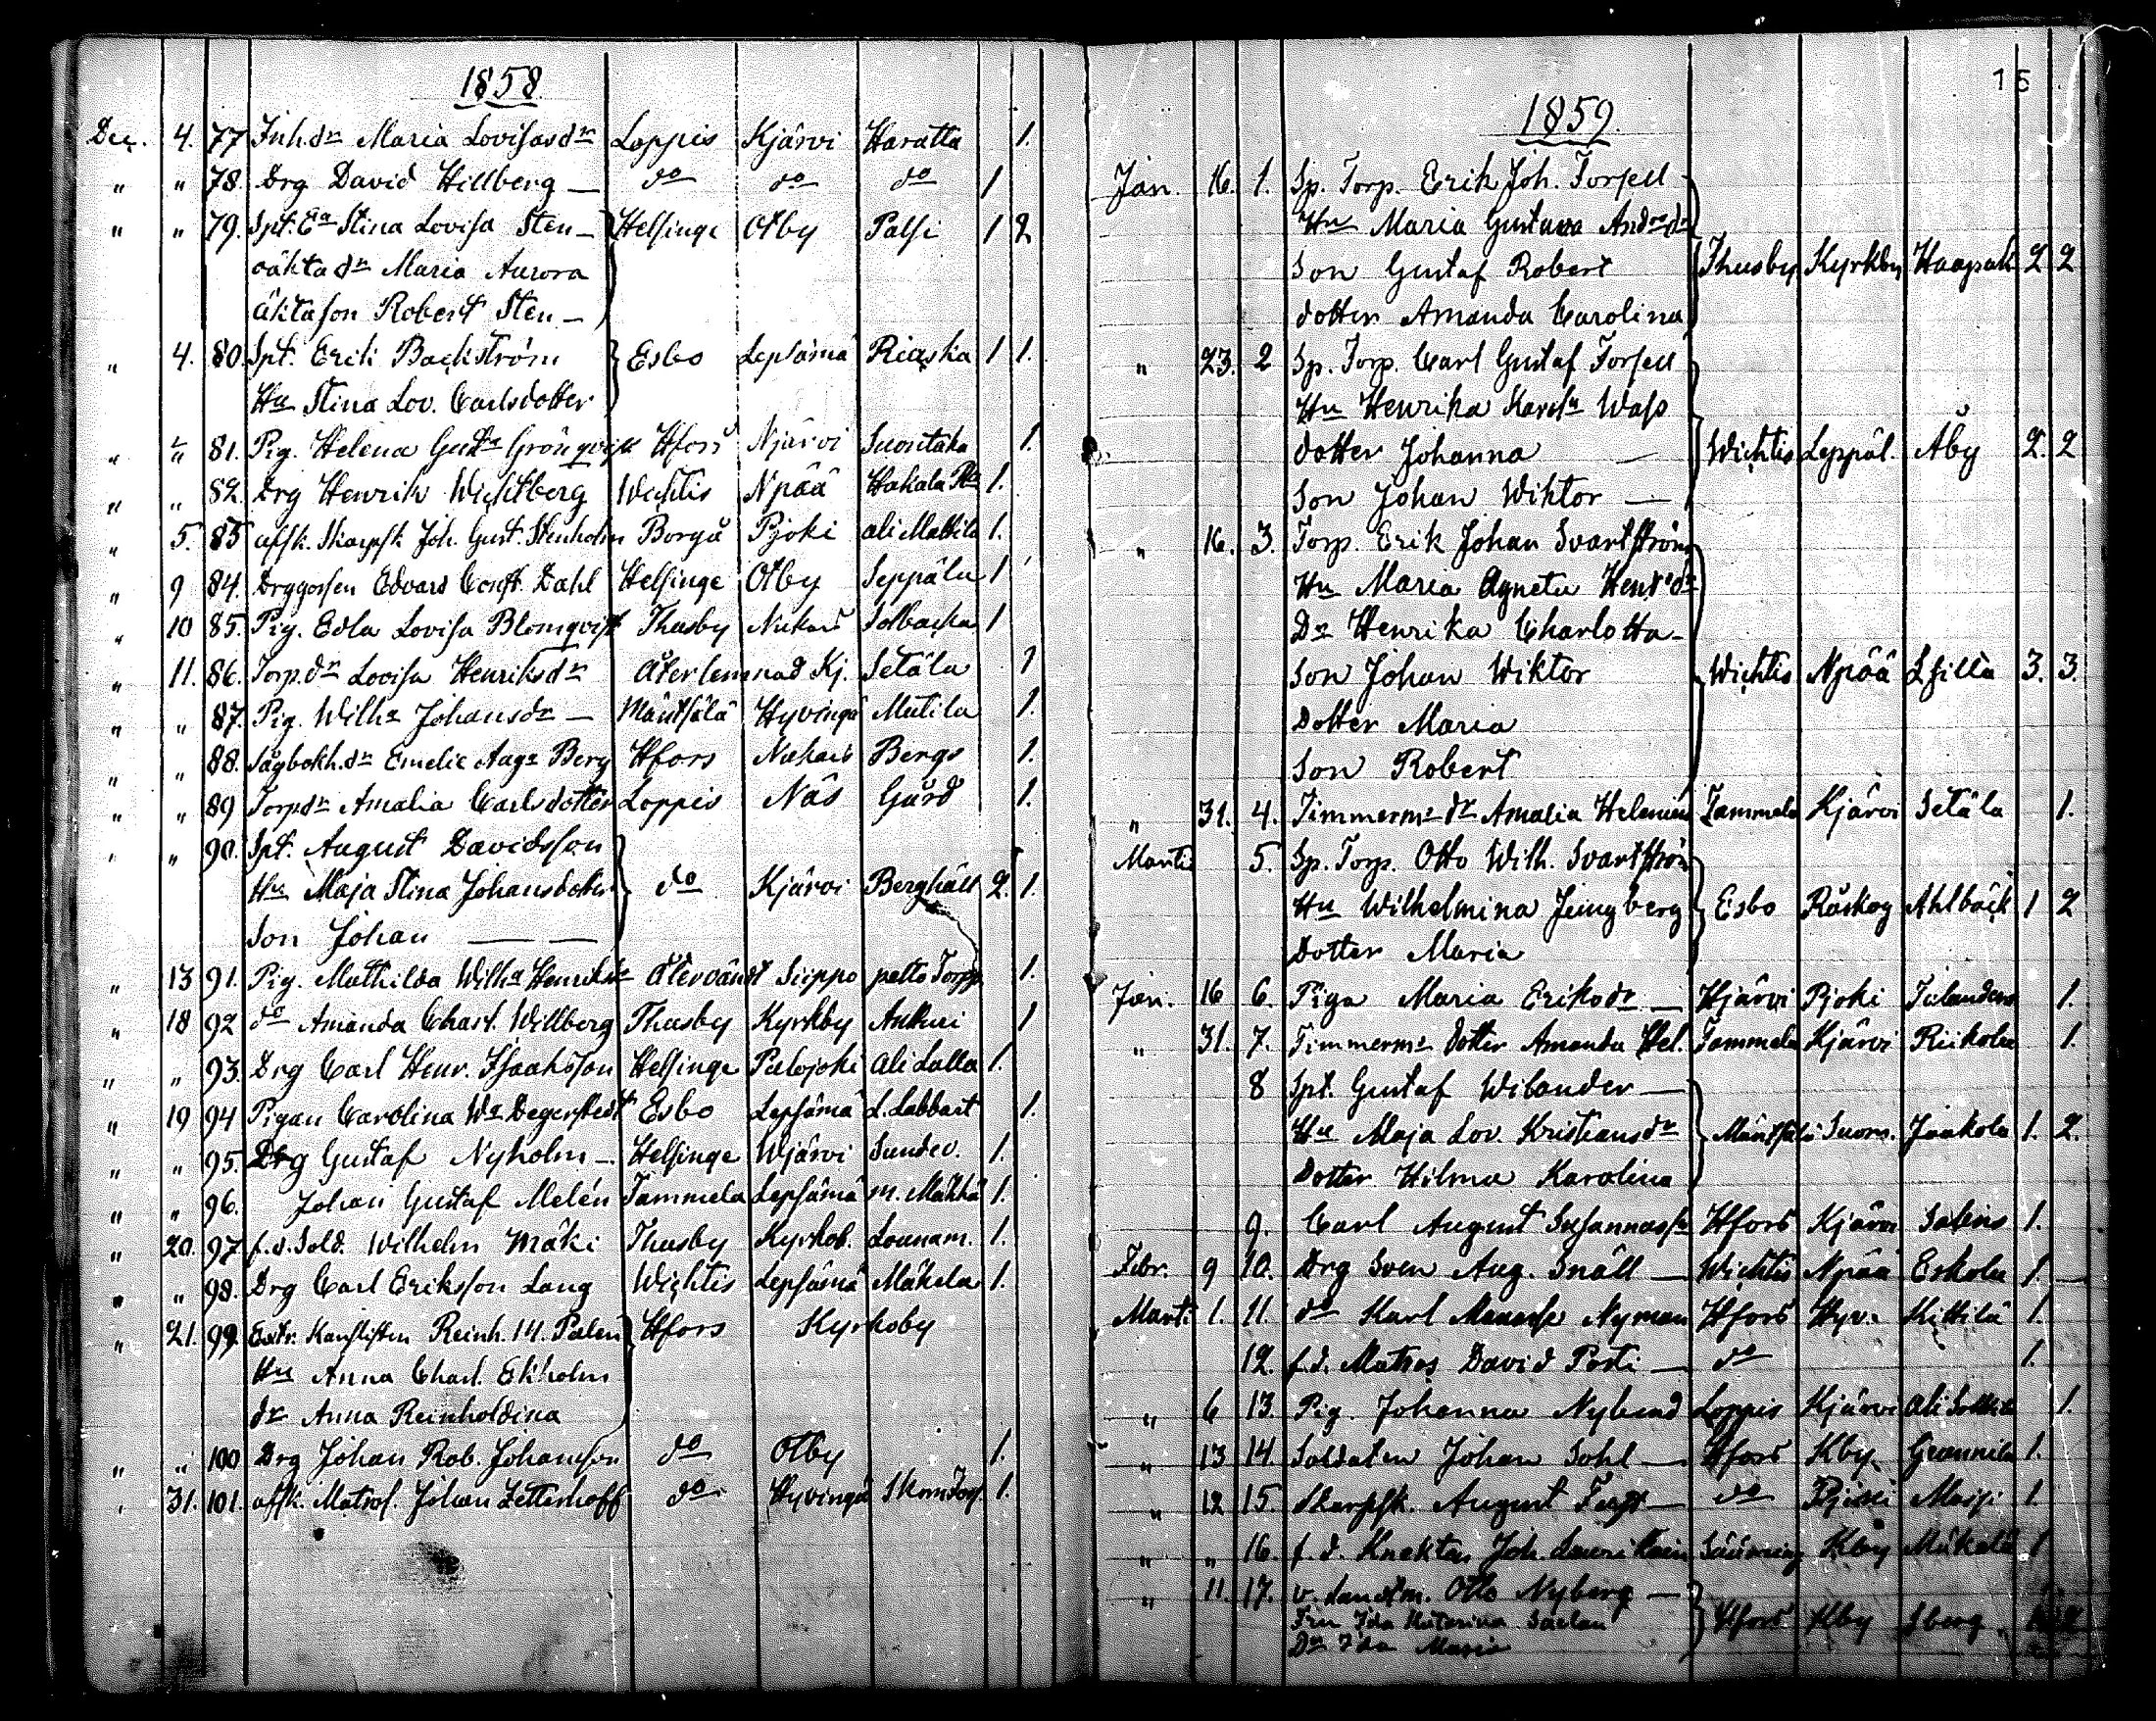 1858
Dec. 4. 77 Inh.dr Maria Lovisasdr Loppis Kjärvi Haratta 1.
" " 78. Drg David Hillberg — do do do 1
" " 79. Spt. Ea Stina Lovisa Sten — Helsinge Otby Palsi 1 2
oäkta dr Maria Aurora
äkta son Robert Sten —
" 4. 80. Spt. Erik Backström Esbo Lepsämä 1 1.
Hu Stina Lov. Carlsdotter
" " 81. Pig. Helena Grönqvist Hfors Njärvi 1.
" " 82. Drg Henrik Wichtberg Wichtis Npää Hakala 1.
" 5. 83 afsk. Skarpsk Joh. Gust. Stenholm Borgå Pjoki ali Mattila 1.
" 9 84. Drggossen Edvard Dahl Helsinge Otby Seppälä 1
" 10 85. Pig. Edla Lovisa Blomqvist Thusby Nickars Solbacka 1
" 11. 86. Torp.dr Lovisa Henriksdr Återlemnad Kj. Setälä 1
" " 87. Pig. Wilha Johansdr — Mäntsälä Hyvingä Mutila 1.
" " 88. Sågbokh.dr Emelie Auga Berg Hfors Nickars Bergs 1.
" " 89 Torpdr Amalia Carlsdotter Loppis Näs Gård 1.
" " 90. Spt. August Davidsson
Hu Maja Stina Johansdotter do Kjärvi Berghäll 2. 1.
Son Johan — —
" 13 91. Pig. Mathilda Wilha Återvändt Siippo pelto Torpp 1.
" 18 92 do Amanda Charl. Willberg Thusby Kyrkby Antturi 1
" " 93. Drg Carl Henr. Isaaksson Helsinge Palojoki Ali Lalla 1.
" 19 94 Pigan Carolina Wa Degerstedt Esbo Lepsämä L. Labbart 1.
" " 95. Drg Gustaf Nyholm — Helsinge Wjärvi Sundev. 1.
" " 96. Johan Gustaf Melén Tammela Lepsämä 1.
" 20. 97. f.d. Sold. Wilhelm Mäki Thusby Kyrkob. Lounam. 1.
" " 98. Drg Carl Eriksson Lang Wichtis Lepsämä Mäkelä 1.
" 21. 99. Extr. Kanslisten Reinh. Palen Hfors Kyrkoby
Hu Anna Charl. Ekholm
dr Anna Reinholdina
" " 100 Drg Johan Rob. Johansson do Otby 1.
" 31. 101. afsk. Matros. Johan Zetterhoff do Hyvingä Skom Torp. 1.
15
1859.
Jan. 16. 1. Sp. Torp. Erik Joh. Forsell
Hu Maria Gustava Andrsdr
Son Gustaf Robert Thusby Kyrkby Haapak 2 2
dotter Amanda Carolina
" 23. 2 Sp. Torp. Carl Gustaf Forsell
Hu Henrika Wass
dotter Johanna — Wichtis Leppäl. Åby 2. 2
Son Johan Wiktor —
" 16. 3. Torp. Erik Johan Svartström
Hu Maria Agneta Henrsdr
Dr Henrika Charlotta —
Son Johan Wiktor Wichtis Npää 3. 3.
Dotter Maria
Son Robert
" 31. 4. Timmerms dr Amalia Helenius Tammela Kjärvi Setälä 1.
Marti 5. Sp. Torp. Otto Wilh. Svartström
Hu Wilhelmina Ljungberg Esbo Råskog Ahlbäck 1 2
Dotter Maria
Jan. 16 6. Piga Maria Eriksdr — Hjärvi Pjoki 1.
" 31. 7. Timmerms dotter Amanda Hel. Tammela Kjärvi Riikola 1.
8 Spt. Gustaf Wilander —
Hu Maja Lov. Kristiansdr Mäntsälä Suom. Jaakola 1. 2.
Dotter Hilma Karolina
9. Carl August Hfors Kjärvi 1.
Febr. 9 10. Drg Sven Aug. Snäll — Wichtis Npää Eskola 1. —
Marti 1. 11. do Karl Manasse Nyman Hfors Hyv. Kittilä 1.
12. f.d. Matros David Posti — do 1.
" 6 13. Pig. Johanna Nylund Loppis Kjärvi Ali 1.
" 13 14. Soldaten Johan Sohl — Hfors Kby 1.
" 12 15. Skarpsk. August — do 1.
" " 16. f.d. Knekten Joh. Kby Mäkelä 1
" 11. 17. v. Landtm. Otto Nyberg —
Fru Ida Katarina Hfors Kby 2
Dr Ida Maria